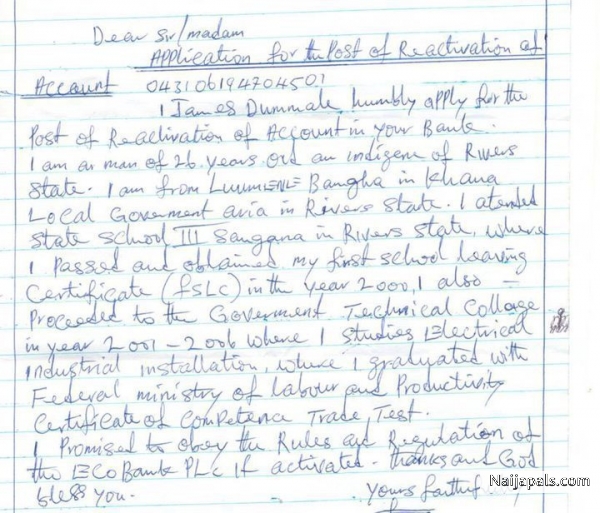 Dear Sir/madam
Application for the Post of Reactivation of
Account 043106194704501
I James Dummale humbly apply for the
Post of Reactivation of Account in your Bank.
I am an man of 26 years old an indigene of Rivers
State. I am from Luumene Bangha in Khana
Local Goverment aria in Rivers State. I atended
State School III Sangana in Rivers State, where
I Passed and obtained my first school leaving
Certificate (fSLC) in the year 2000, I also -
Proceeded to the Goverment Technical Collage
in year 2001 - 2006 where I studies Electrical
Industrial installation, where I graduated with
Federal ministry of labour and Productivity
Certificate of Competence Trade Test.
I Promised to obey the Rules and Regulation of
the ECo Bank PLc If activated. thanks and God
bless you.
Yours faithf
Naijapals.com